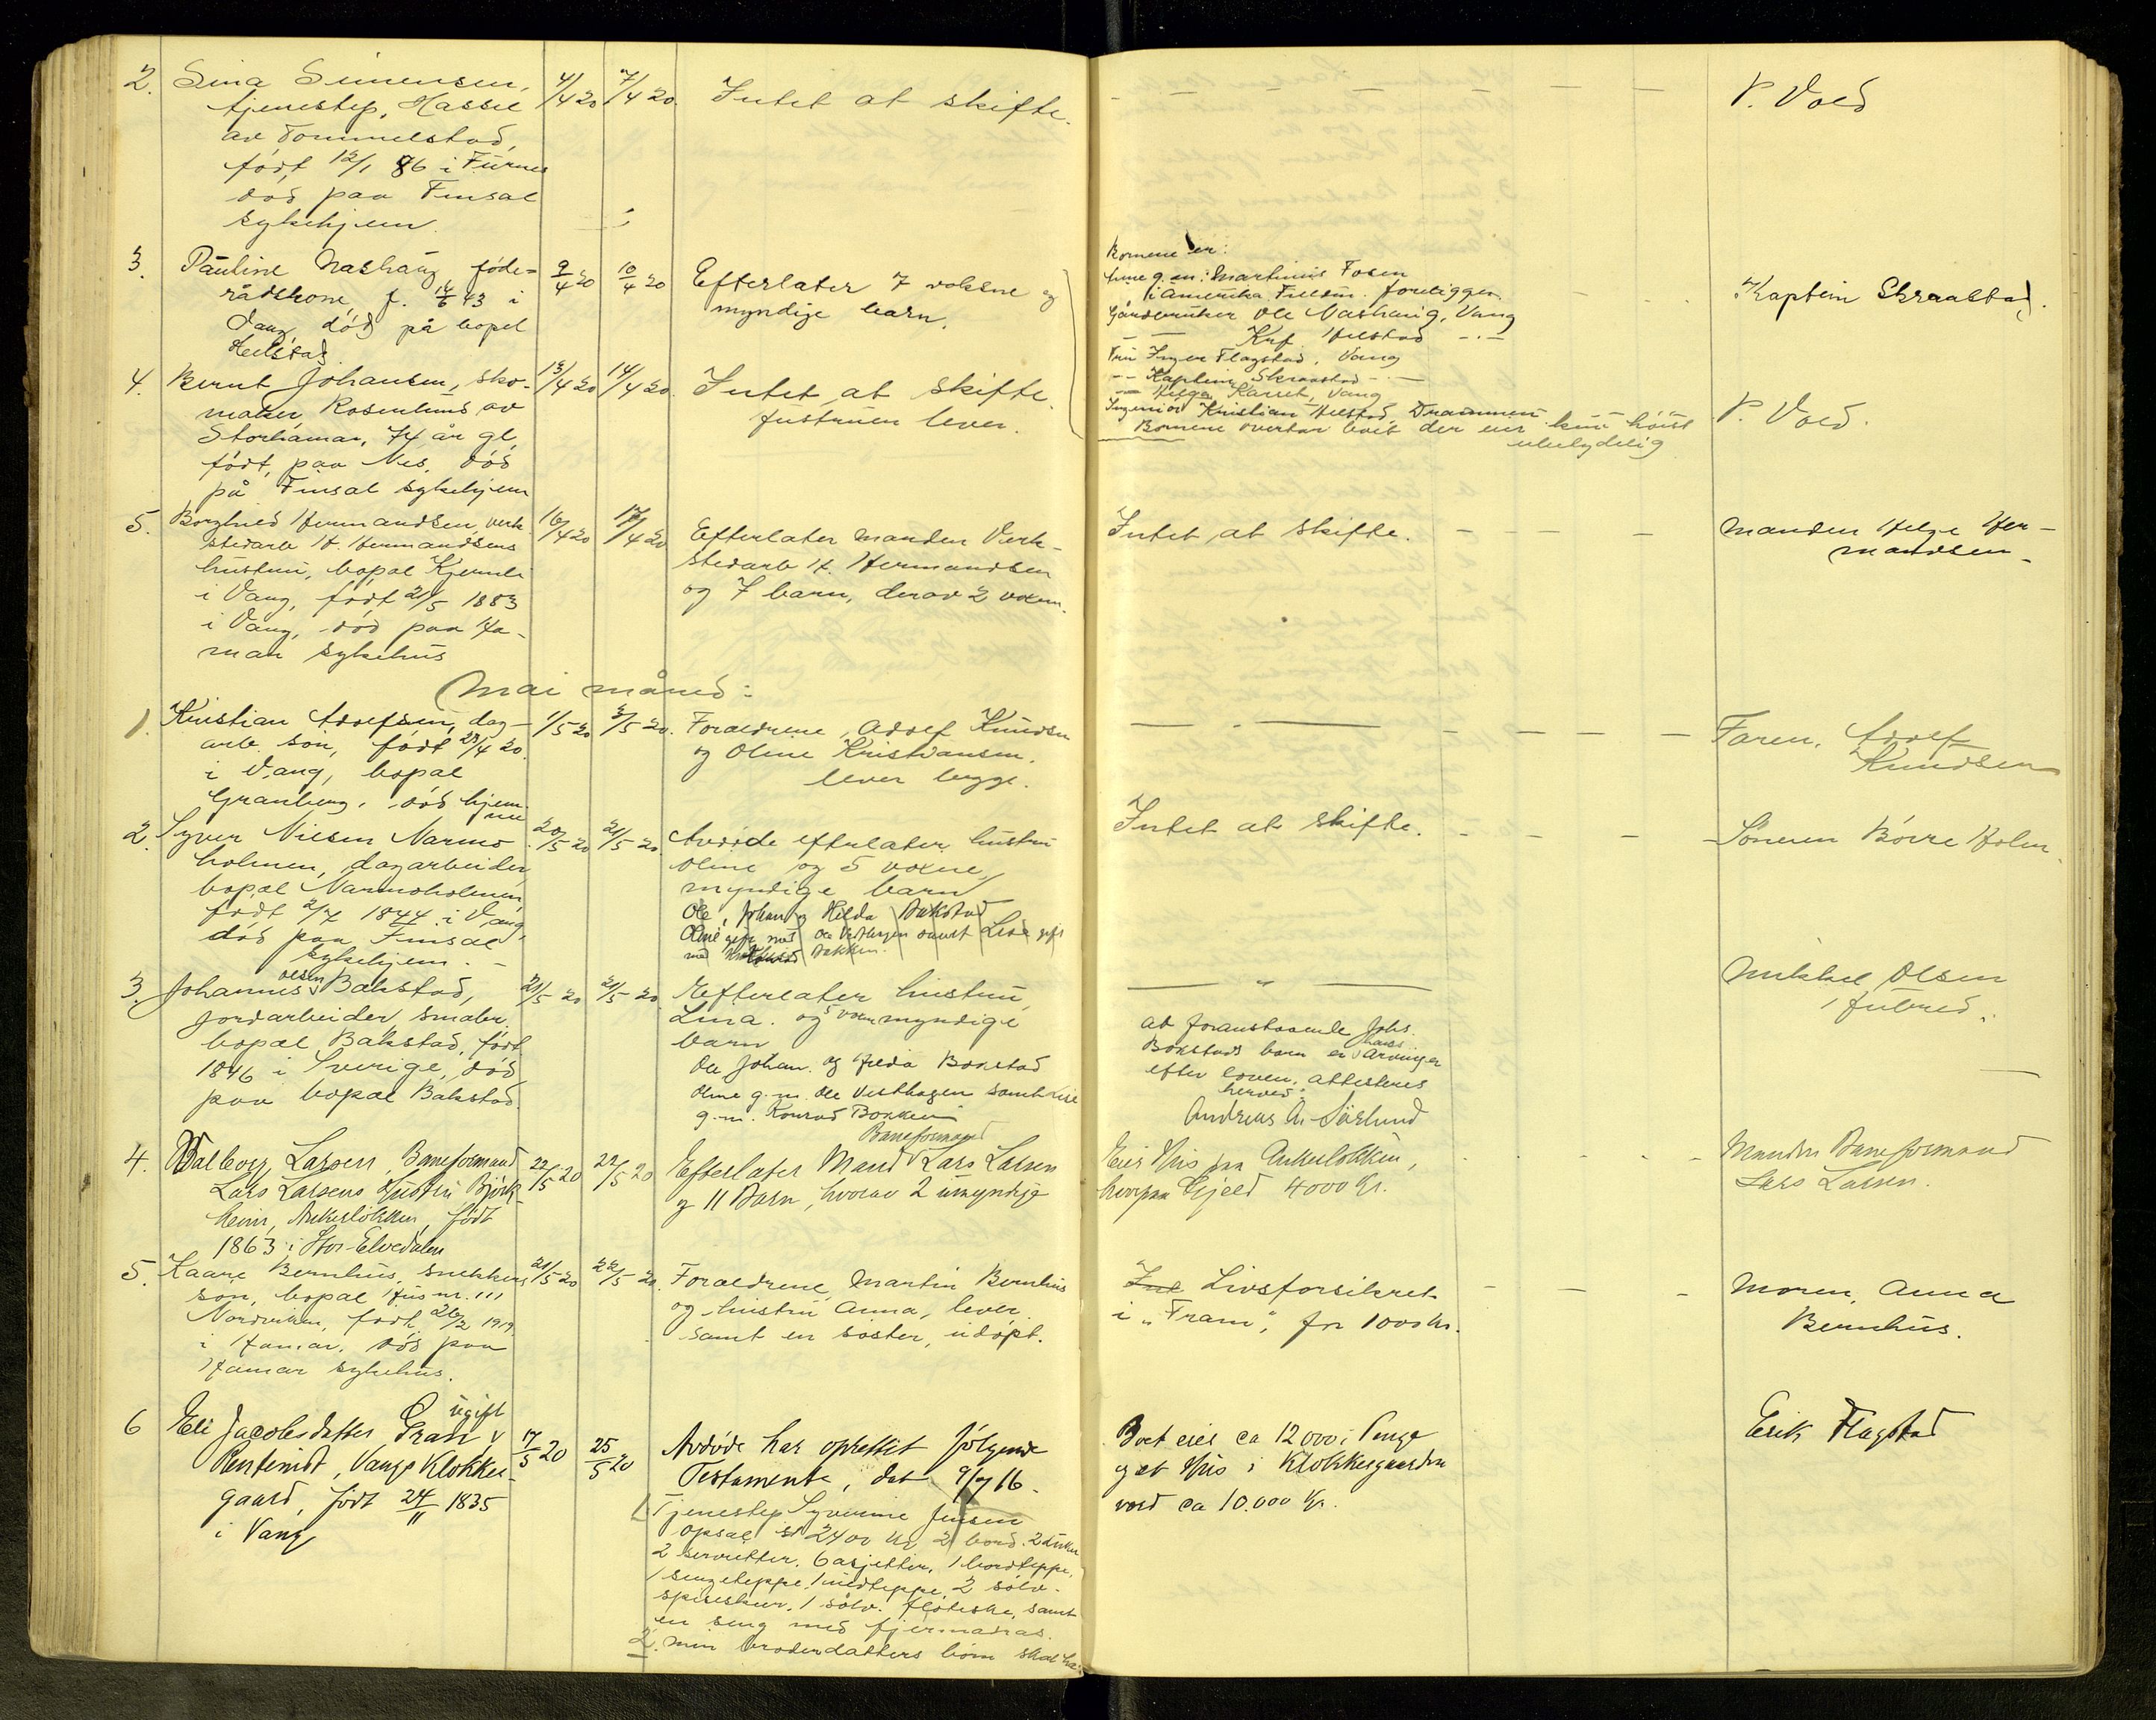 2. Lina Simensen, 4/4 20 7/4 20. Intet at skifte. — — — P. Vold
tjenestep. Hassel
av Tommelstad,
født 12/1 86 i Furnes
død paa Finsal
sykehjem.
3. Pauline Nashaug, føde- 9/4 20 10/4 20 Efterlater 7 voksne og Kaptein Skraastad.
rådskone, f. 14/6 43 i myndige barn.
Vang, død på bopel
Helstad.
Bornene er:
Martinius Fosen
i Amerika. Fuldm. foreligger.
Gårdbruker Ole Nashaug, Vang
— Krf. Helstad — . —
Fru Inger Flagstad, Vang
— Kaptein Skraastad — . —
— Helga Karset, Vang
Ingeniør Kristian Helstad, Drammen
Bornene overtar boet der eier kun høist
ubetydelig
4. Bernt Johansen, sko- 13/4 20 14/4 20. Intet at skifte. P. Vold.
maker, Rosenlund av hustruen lever.
Storhamar, 74 år gl.,
født paa Nes. død
på Finsal sykehjem
5. Borghild Hermandsen verk- 16/4 20 17/4 20 Efterlater manden Verk- Intet at skifte. — — — — manden Helge Her-
stedarb. H. Hermandsens stedarb H. Hermandsen mandsen.
hustru, bopæl Kjernli og 7 barn, derav 2 voxen.
i Vang, født 21/5 1883
i Vang, død paa Ha-
mar sykehus
Mai måned:
1. Kristian Adolfsen, dag- 1/5 20 3/5 20. Forældrene, Adolf Knudsen — " — — — — — Faren, Adolf
arb. søn, født 23/4 20 og Oline Kristiansen, Knudsen
i Vang, bopæl lever begge.
Granberg, død hjem-
me
2. Syver Nilsen Narmo- 20/5 20 21/5 20. Avdøde efterlater hustru Intet at skifte. — — — Sønnen Børre Holm.
holmen, dagarbeider, Oline og 5 voxne,
bopæl Narmoholmen, myndige barn
født 2/7 1844 i Vang, Ole, Johan og Hilda Bakstad
død paa Finsal Oline gift med Ole Vesthagen samt Lise gift
sykehjem. — med Konrad Bakken.
3. Johannes Olsen Bakstad, 21/5 20 21/5 20 Efterlater hustru, — " — Mikkel Olsen
jordarbeider, smaabr. Lina. og 5 voxn myndige i Fubred.
bopæl Bakstad, født barn
1846 i Sverige, død Ole Johan og Hilda Bakstad
paa bopæl Bakstad. Oline g. m. Ole Vesthagen samt Lise
g. m. Konrad Bakken
At foranstaaende Johs.
Bakstads barn er hans Arvinger
efter loven, attesteres
herved:
Andreas A. Sørlund
4. Valborg Larsen, Baneformand 22/5 20 22/5 20 Efterlater Mand Baneformand Lars Larsen Eier Hus paa Ankerløkken, — Manden Baneformand
Lars Larsens Hustru Bjørk- og 11 Barn, hvorav 2 umyndige hvorpaa Gjeld 4000 kr. Lars Larsen.
heim, Ankerløkken, født
1863 i Stor-Elvedalen
5. Kaare Bernhus, snekkers 21/5 20 22/5 20. Forældrene, Martin Bernhus Livsforsikret — — — Moren, Anna
søn, bopæl Hus nr. 111 og hustru Anna, lever i „Fram“, for 1000 kr. Bernhus.
Nordviken, født 26/2 1919 samt en søster, udøpt.
i Hamar. død paa
Hamar sykehus.
6 Eli Jacobsdatter Gran, ugift 17/5 20 25/5 20 Avdøde har oprettet følgende Boet eier ca 12000 i Penge Erik Flagstad
Rentenist, Vangs Klokker- Testamente, dat 9/9 16. og et Hus i Klokkergaarden
gaard, født 24/11 1835 værd ca 10.000 Kr.
i Vang
1. Tjenestep Syverine Jensen
Opsal 2400 kr, 2 bord. 2 duker
2 servietter. 6 asjetter, 1 bordteppe,
1 sengeteppe, 1 uldteppe, 2 sølv-
spiseskeer, 1 sølv. fløteske, samt
en seng med fjermadras.
2. min broderdatters børn skal ha: